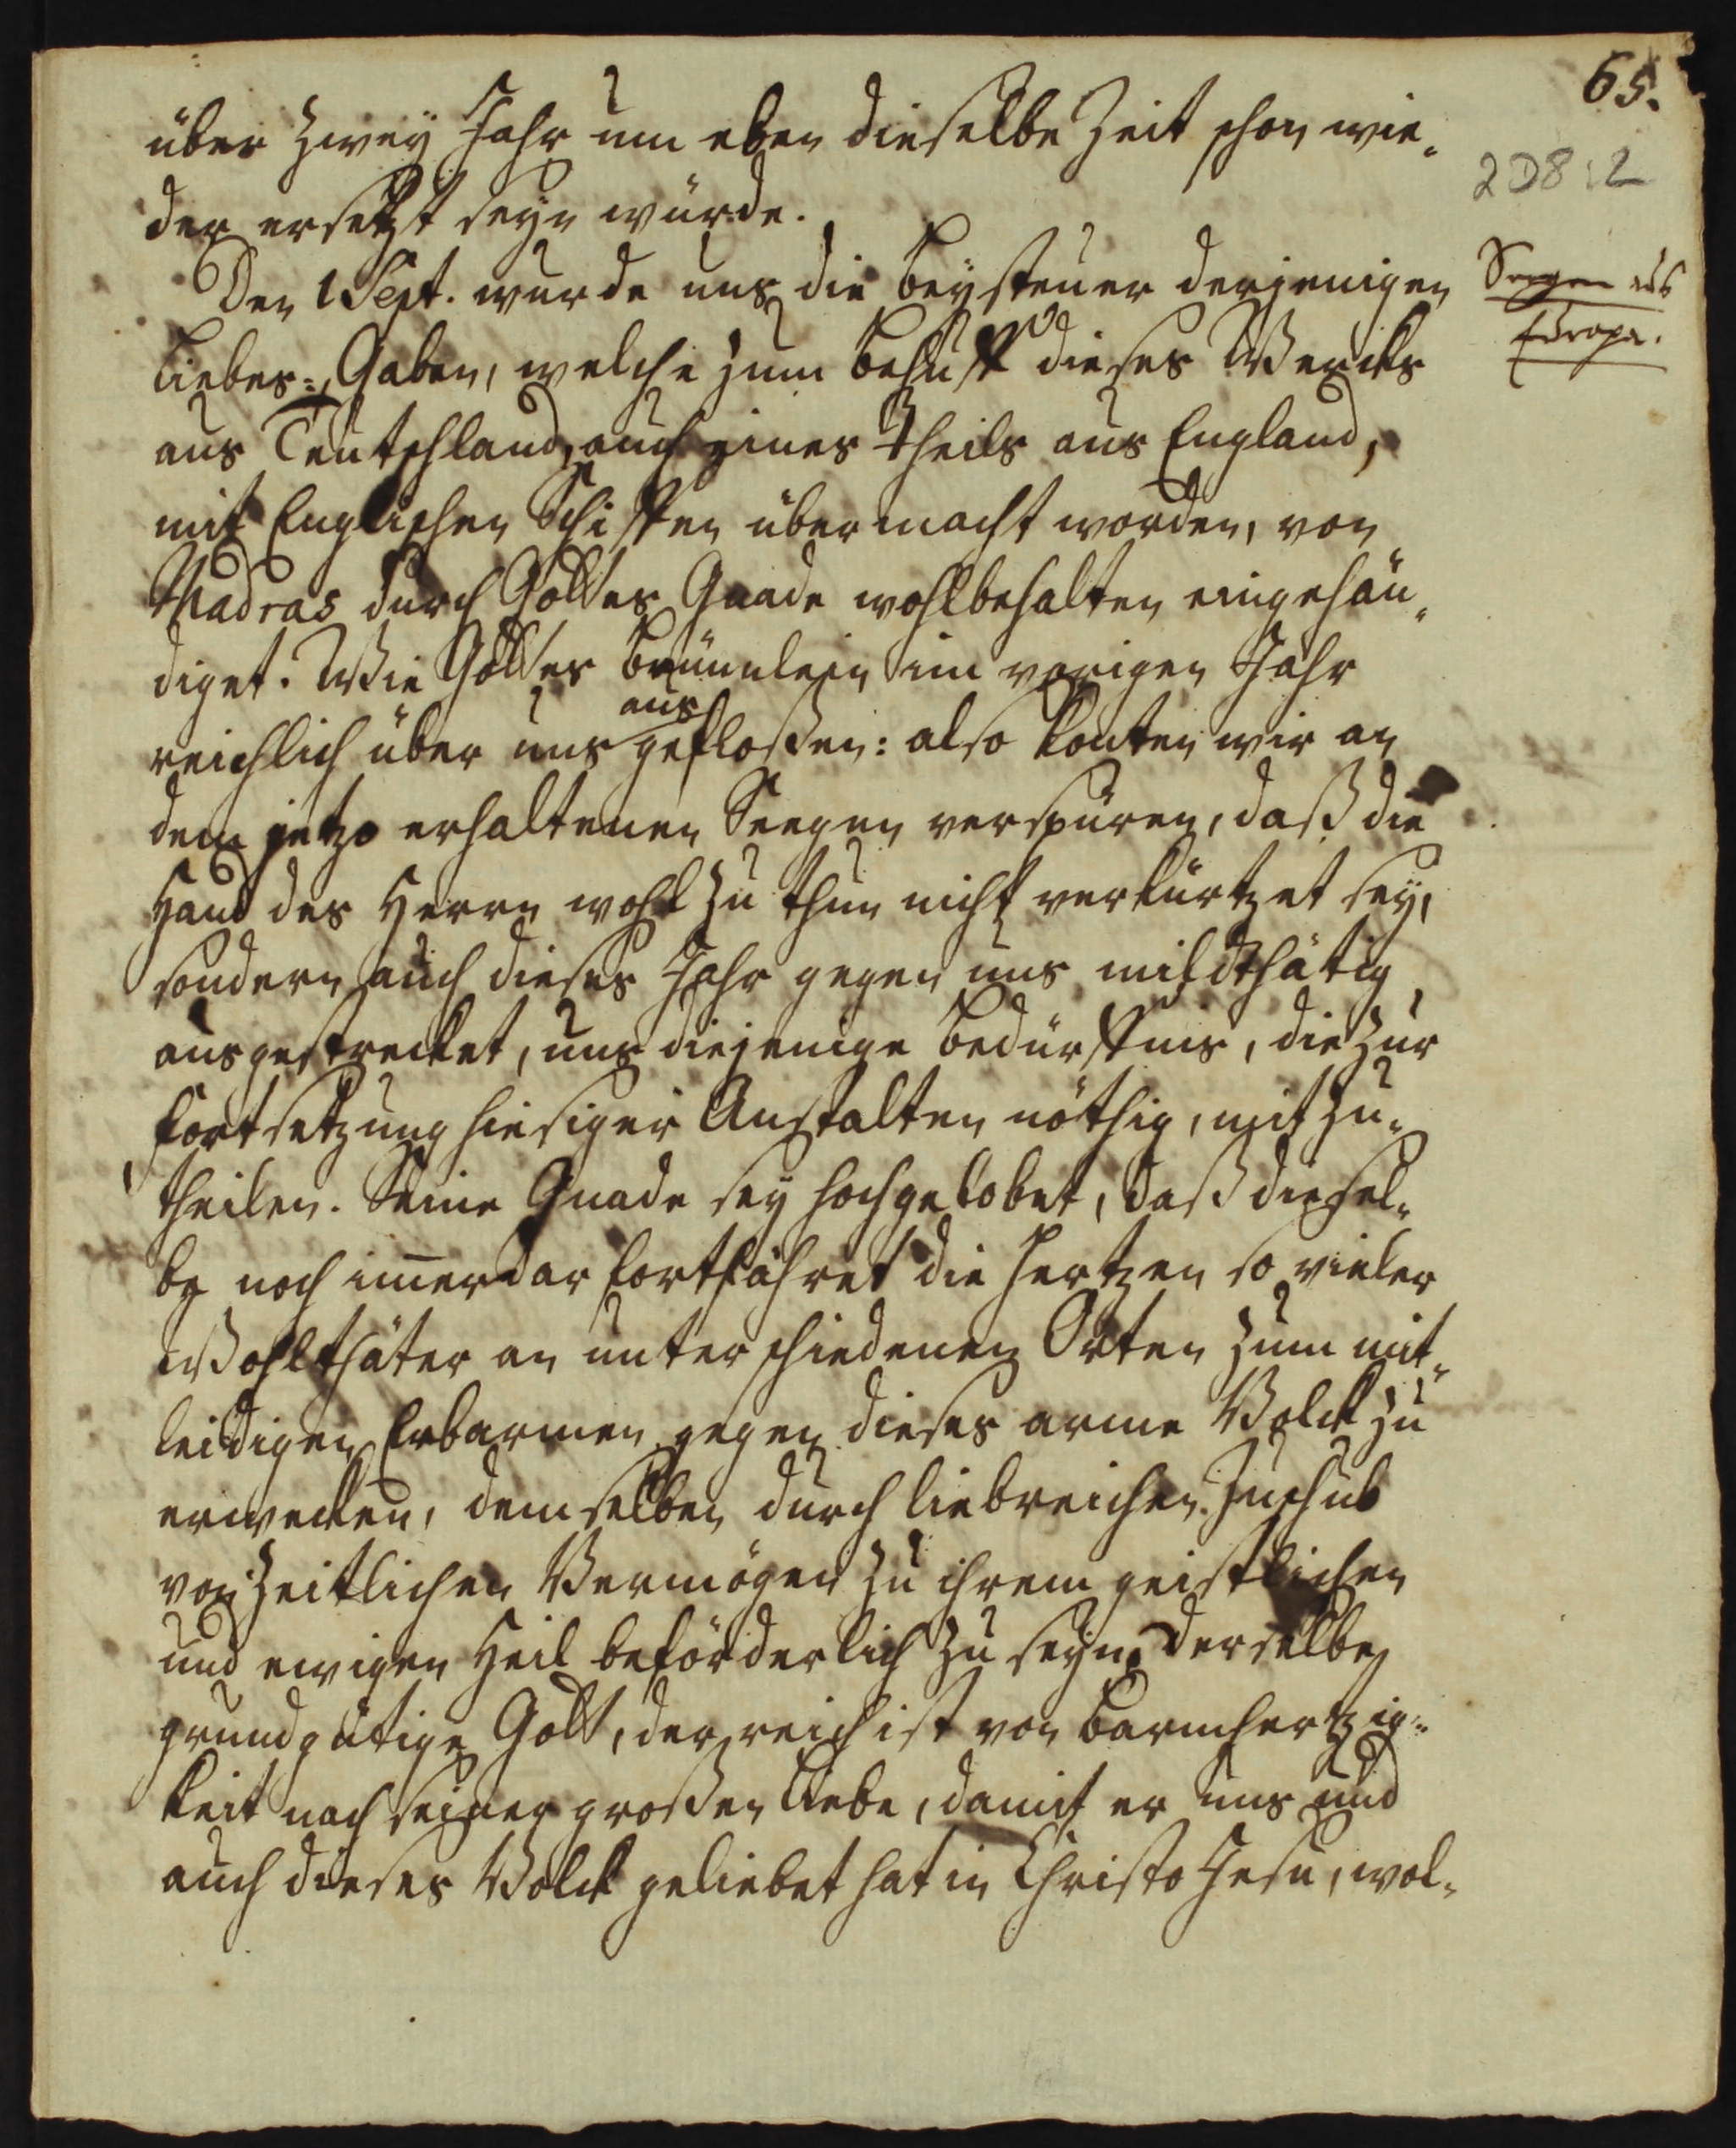 65.
2D8:2
über zwey Jahr um eben dieselbe Zeit schon wie-
der ersetzt seyn würde.
Den 1 Sept. wurde uns die beysteuer derjenigen
Seegen aus
Europa.
Liebes-Gaben, welche zum behuff dieses Wercks
aus Teutschland, auch eines theils aus England,
mit Englischen Schiffen übermacht worden, von
Madras durch Gottes Gnade wohlbehalten eingehän-
diget. Wie Gottes brünnlein im vorigen Jahr
aus
reichlich über uns gefloßen: also konten wir an
dem jetzo erhaltenen Seegen verspüren, daß die
Hand des Herrn wohl zu thun nicht verkürtzet sey,
sondern auch dieses Jahr gegen uns mildthätig
ausgestrecket, uns diejenige bedürffnis, die zur
fortsetzung hiesiger Anstalten nöthig, mit zu-
theilen. Seine Gnade sey hochgelobet, daß diesel-
be noch im̅erdar fortfähret die Hertzen so vieler
Wohlthäter an unterschiedenen Orten zum mit-
leidigen Erbarmen gegen dieses arme Volck zu
erwecken, demselben durch liebreichen Zuschub
von Zeitlichen Vermögen zu ihrem geistlichen
und ewigen Heil beförderlich zu seyn. Derselbe
grundgütige Gott, der reich ist von barmhertzig-
keit nach seiner großen Liebe, damit er uns und
auch dieses Volck geliebet hat in Christo Jesu, wol-